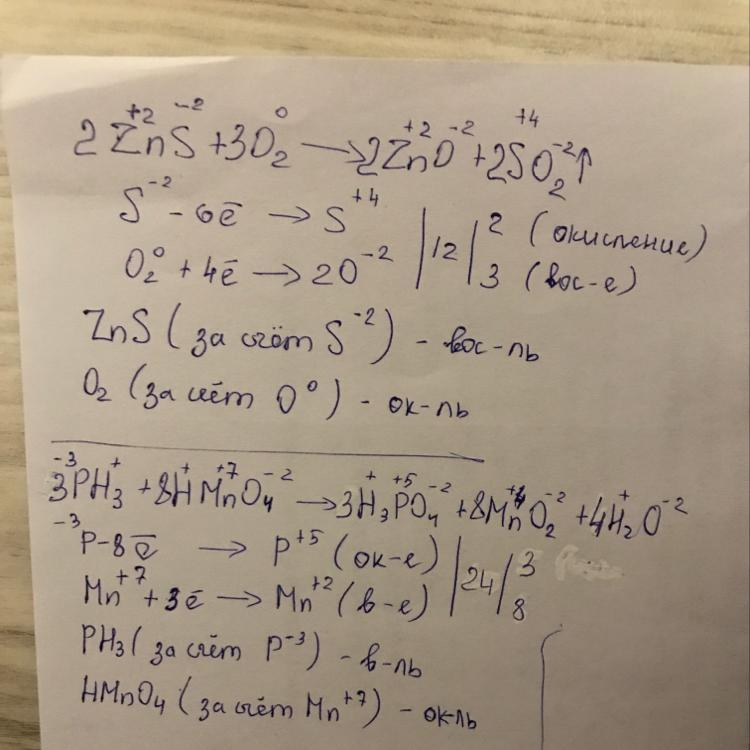 2Zn⁺²S⁻² + 3O₂⁰ → 2Zn⁺²O⁻² + 2S⁺⁴O₂⁻²↑
S⁻² - 6ē → S⁺⁴ | 12 | 2 (окисление)
O₂⁰ + 4ē → 2O⁻² | 3 (вос-е)
ZnS (за счёт S⁻²) - вос-ль
O₂ (за счёт O⁰) - ок-ль
3P⁻³H₃⁺ + 8H⁺Mn⁺⁷O₄⁻² → 3H₃⁺P⁺⁵O₄⁻² + 8Mn⁺⁴O₂⁻² + 4H₂⁺O⁻²
P⁻³ - 8ē → P⁺⁵ (ок-е) | 24 | 3
Mn⁺⁷ + 3ē → Mn⁺² (в-е) | 8
PH₃ (за счёт P⁻³) - в-ль
HMnO₄ (за счёт Mn⁺⁷) - ок-ль